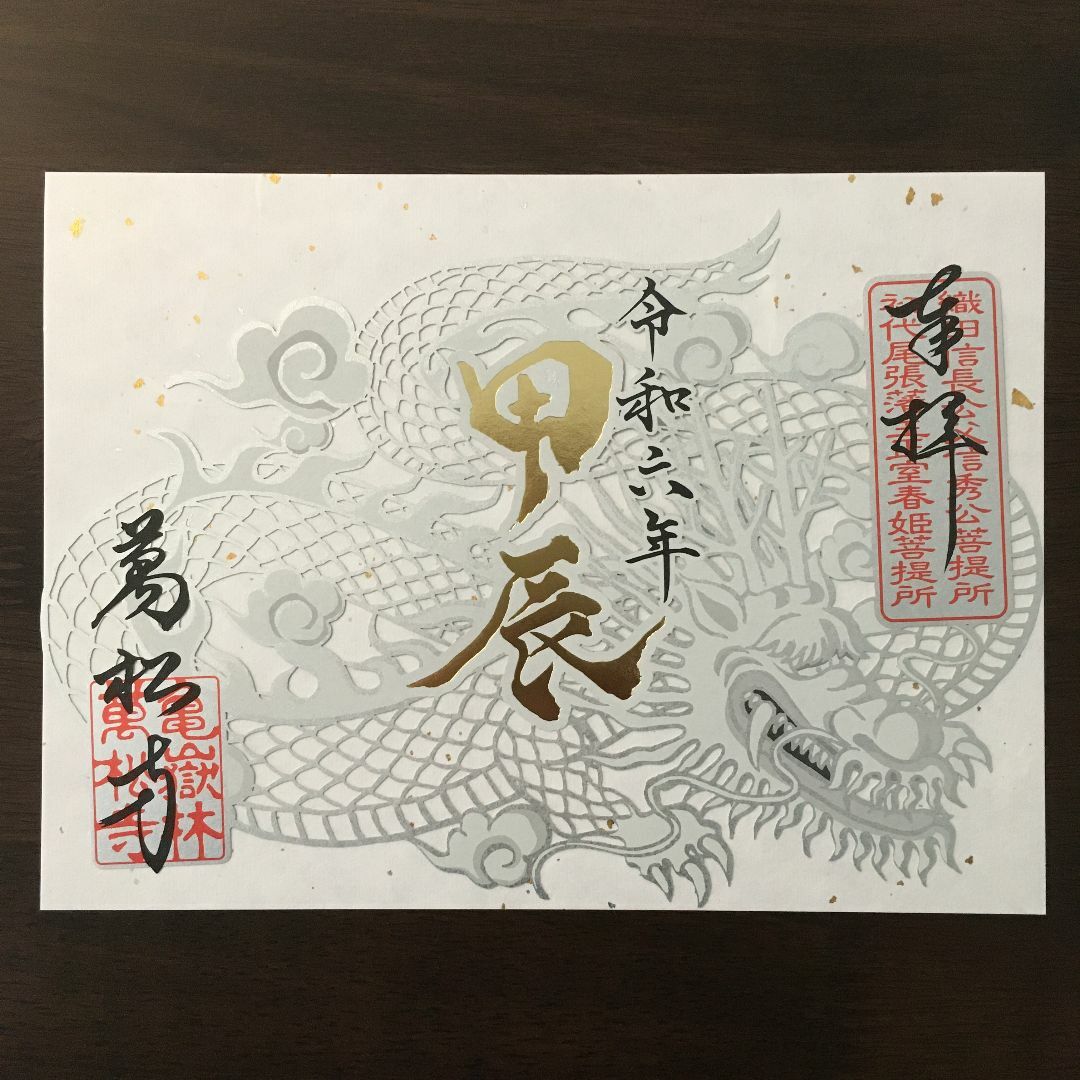 奉拝
織田信長公父信秀公菩提所
初代尾張藩主正室春姫菩提所
令和六年
甲辰
萬松寺
亀嶽林
萬松寺